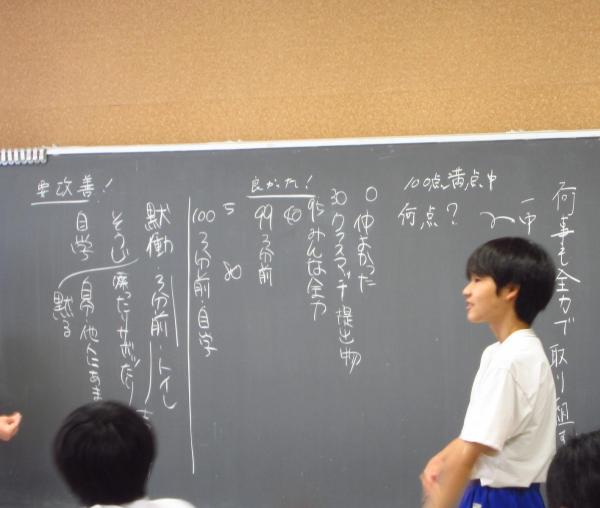 何事も全力で取り組
100点満点中
何点?
良かった!
0 仲よかった
30 クラスマッチ 提出物
95 みんな全力
80
99 3分前
5
80
100 3分前・自学
要改善!
黙働・3分前・トイレ
そうじ 喋ったりサボったり
自学
黙る